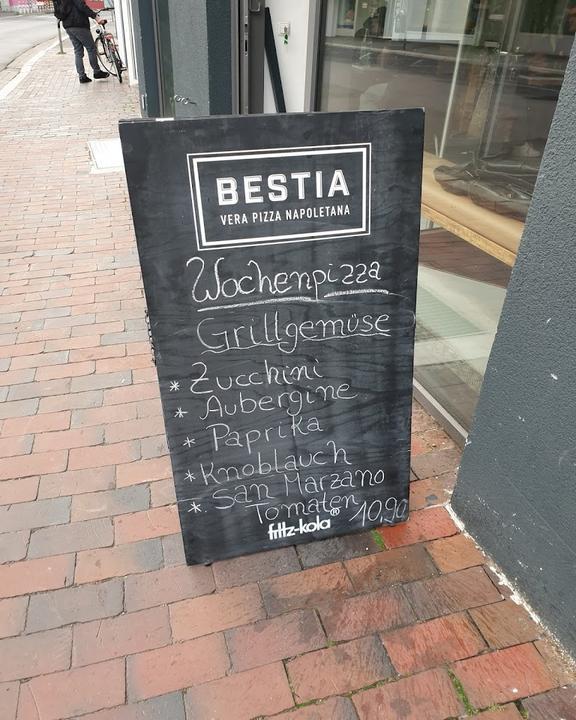 BESTIA
VERA PIZZA NAPOLETANA
Wochenpizza
Grillgemüse
* Zucchini
* Aubergine
* Paprika
* Knoblauch
* San Marzano
Tomaten 10,90
fritz-kola®